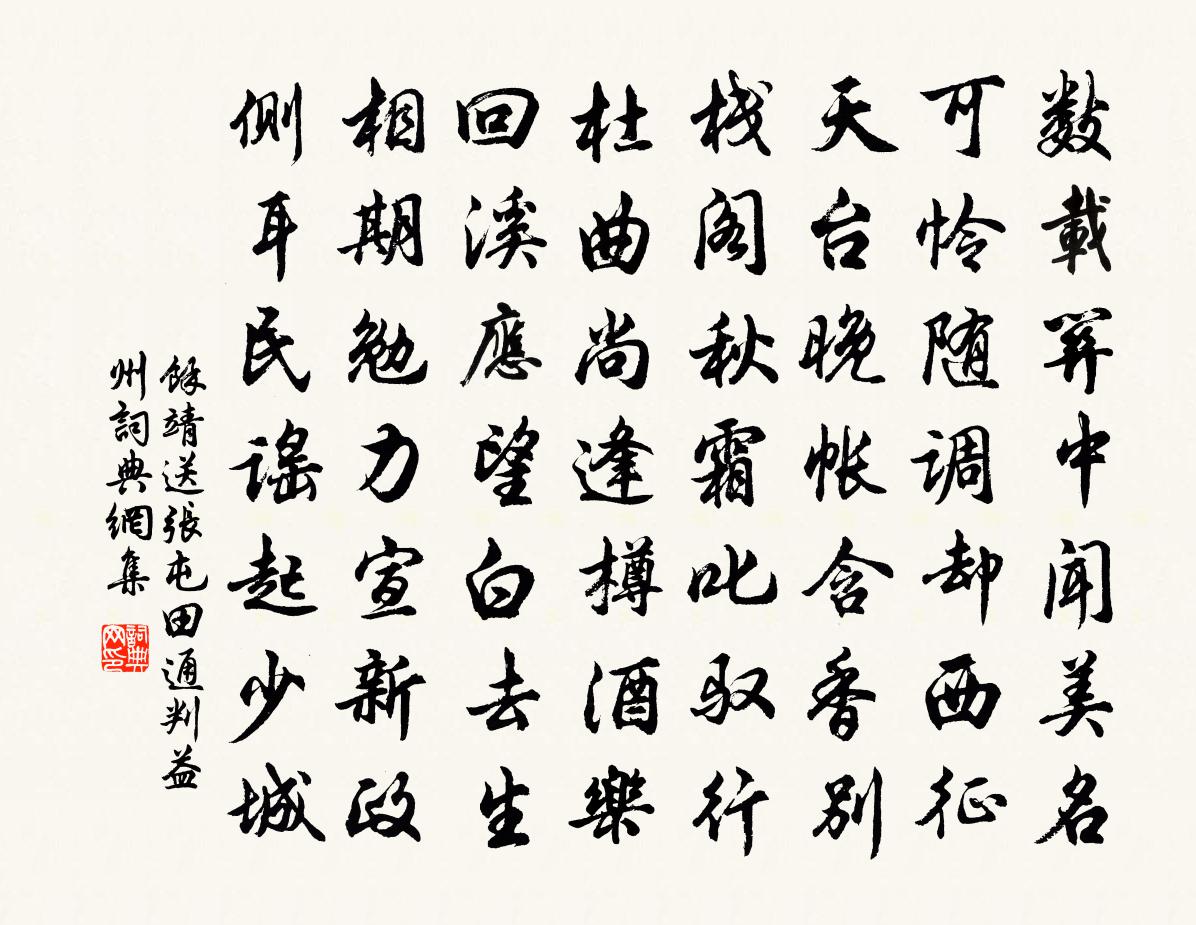 数載关中闻美名
可怜随调却西征
天台晚帐含香别
栈阁秋霜叱驭行
杜曲尚逢樽酒樂
回溪應望白去生
相期勉力宣新政
侧耳民謡起少城
餘靖送張屯田通判益
州詞典網集
詞典
网印